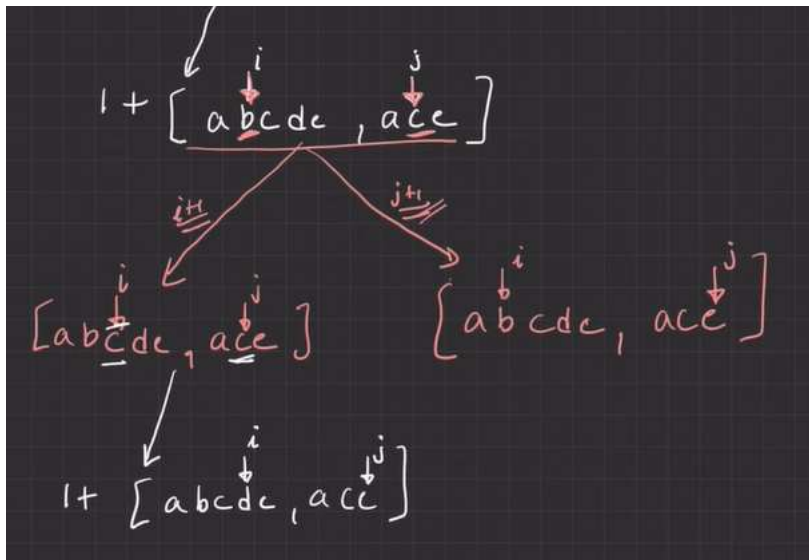 i j
1 + [ abcde , ace ]
i+1 j+1
i j
[abcde , ace ]
i j
[ abcde , ace ]
i j
1+ [ abcde , ace ]